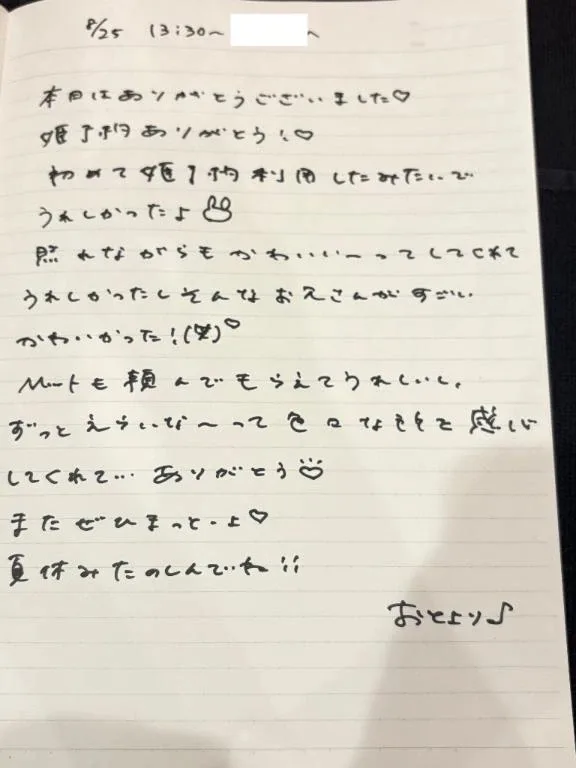 8/25 13:30〜 へ
本日はありがとうございました♡
姫予約ありがとう!♡
初めて姫予約利用したみたいで
うれしかったよ
照れながらもかわいい〜ってしてくれて
うれしかったしそんなお兄さんがすごい
かわいかった!( )♡
も頼んでもらえてうれしいし、
ずっとえらいな〜って色々な 感心
してくれて… ありがとう♡
またぜひまっと・よ♡
夏休みたのしんでね!!
おとより♪